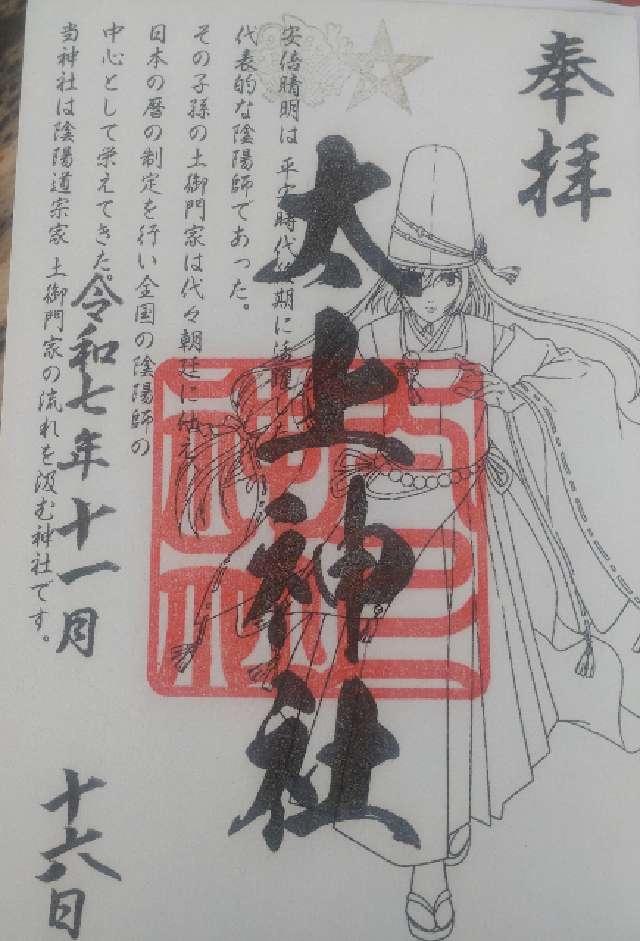 奉拝
太上神社
安倍晴明は 平安時代中期に活躍した
代表的な陰陽師であった。
その子孫の土御門家は代々朝廷に仕え
日本の暦の制定を行い全国の陰陽師の
中心として栄えてきた。
当神社は陰陽道宗家 土御門家の流れを汲む神社です。
令和七年十一月
十六日